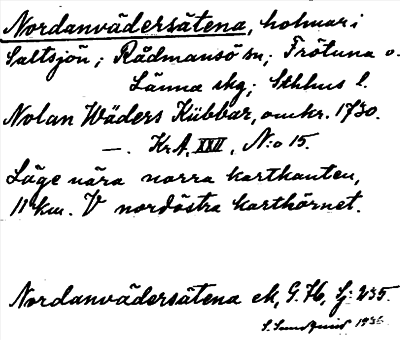 Nordanvädersätena, holmar i
Saltsjön; Rådmansö sn; Frötuna o.
Länna skg; Sthlms l.
Nolan Wäders Kübbar, omkr. 1730.
—. Kr A, XXII, N:o 15.
Läge nära norra kartkanten,
11 km. V nordöstra karthörnet.
Nordanvädersätena ek, G. Hb, S: 235.